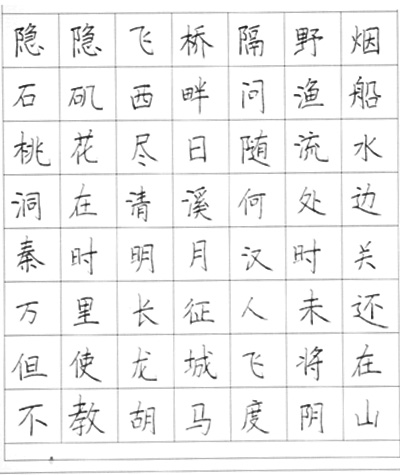 隐隐飞桥隔野烟
石矶西畔问渔船
桃花尽日随流水
洞在清溪何处边
秦时明月汉时关
万里长征人未还
但使龙城飞将在
不教胡马度阴山